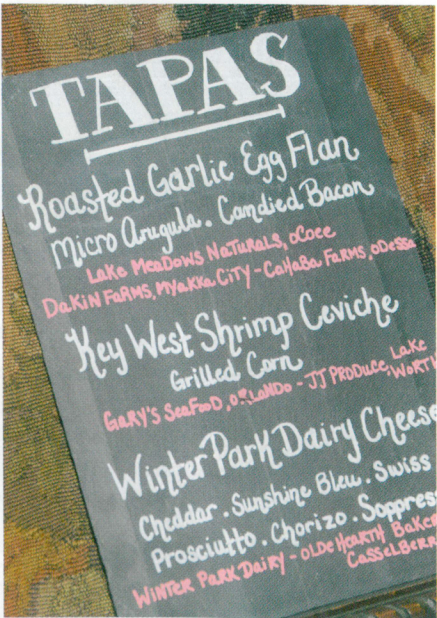 TAPAS
Roasted Garlic Egg Flan
Micro Arugula . Candied Bacon
Lake Meadows Naturals, Ocoee
Dakin Farms, Myakka City - Cahaba Farms, Odessa
Key West Shrimp Ceviche
Grilled Corn
Gary's Seafood, Orlando - JJ Produce, Lake Worth
Winter Park Dairy Cheese
Cheddar . Sunshine Bleu . Swiss
Prosciutto . Chorizo . Soppress
Winter Park Dairy - Olde Hearth Baker
Casselberr